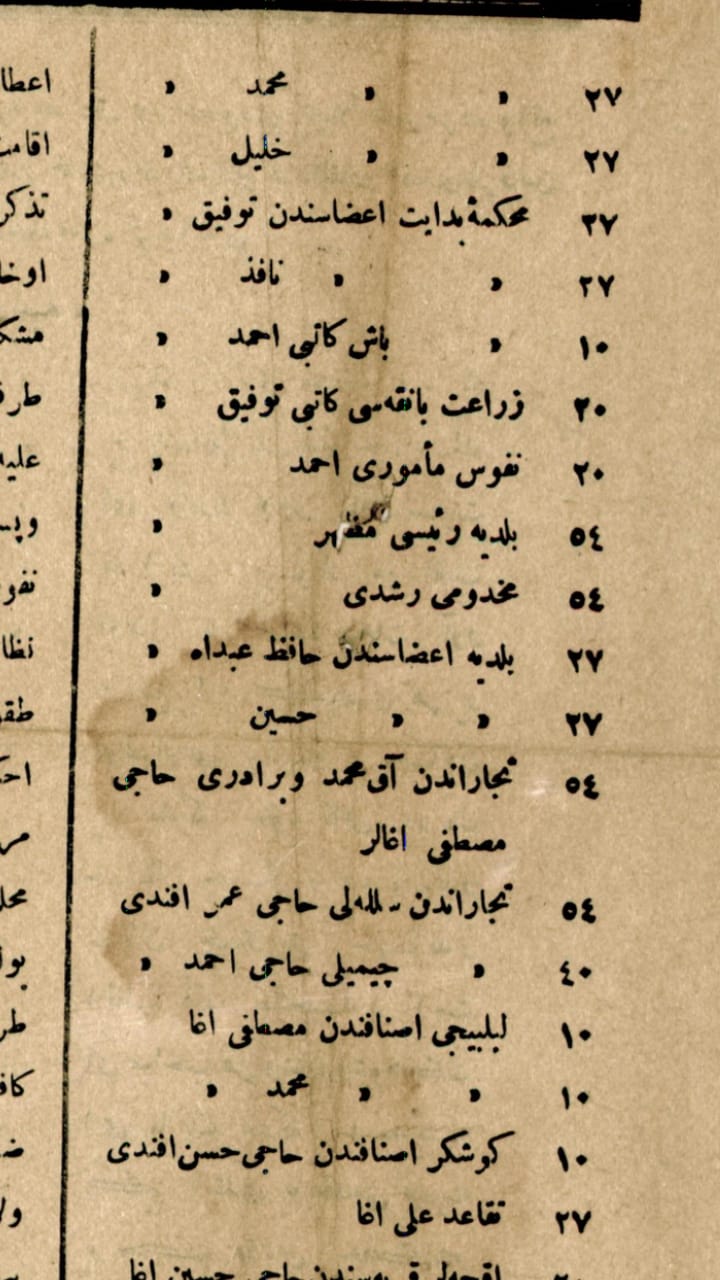 ٢٧ » » محمد »
٢٧ » » خليل »
٢٧ محكمۀ بدايت اعضاسندن توفيق »
٢٧ » » نافذ »
١٠ » باش كاتبى احمد »
٢٠ زراعت بانقه‌سى كاتبى توفيق »
٢٠ نفوس مأمورى احمد »
٥٤ بلديه رئيسى مظهر »
٥٤ مخدومى رشدى »
٢٧ بلديه اعضاسندن حافظ عبداه »
٢٧ » » حسين »
٥٤ تجاراندن آق محمد وبرادرى حاجى
مصطفى اغالر
٥٤ تجاراندن حاجى عمر افندى
٤٠ » چيميلى حاجى احمد »
١٠ لبلبيجى اصنافندن مصطفى اغا
١٠ » » محمد »
١٠ كوشكر اصنافندن حاجى حسن افندى
٢٧ تقاعد على اغا
حاجى حسين اغا
اعطا
تذكر
نفو
نظا